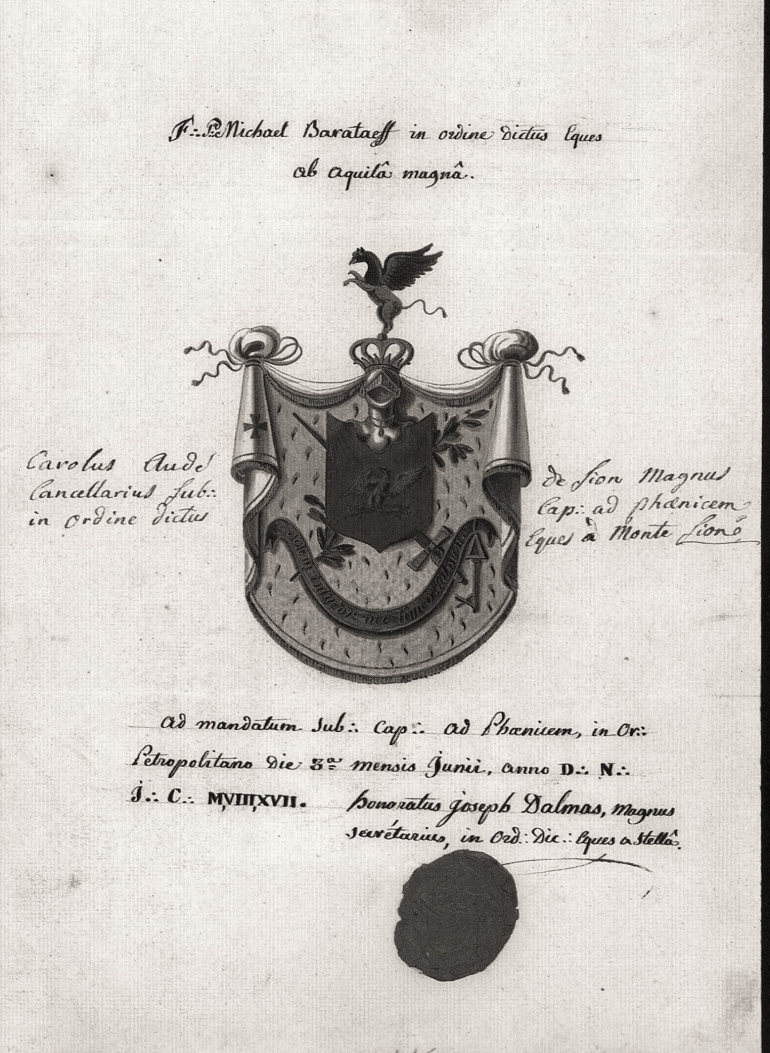 F∴ P Michael Barataeff in ordine dictus Eques
ab aquilâ magnâ.
Carolus Audé de Sion Magnus
Cancellarius Sub∴ Cap∴ ad phœnicem
in ordine dictus Eques à Monte Sionō
solem intueor nec timeo
ad mandatum Sub∴ Cap∴ ad Phœnicem, in Or∴
Petropolitano die 3ª mensis Junii, anno D∴ N∴
J∴ C∴ MVIIIXVII.
honoratus Joseph Dalmas, Magnus
secrétarius, in Ord∴ Dic∴ Eques a Stellâ.